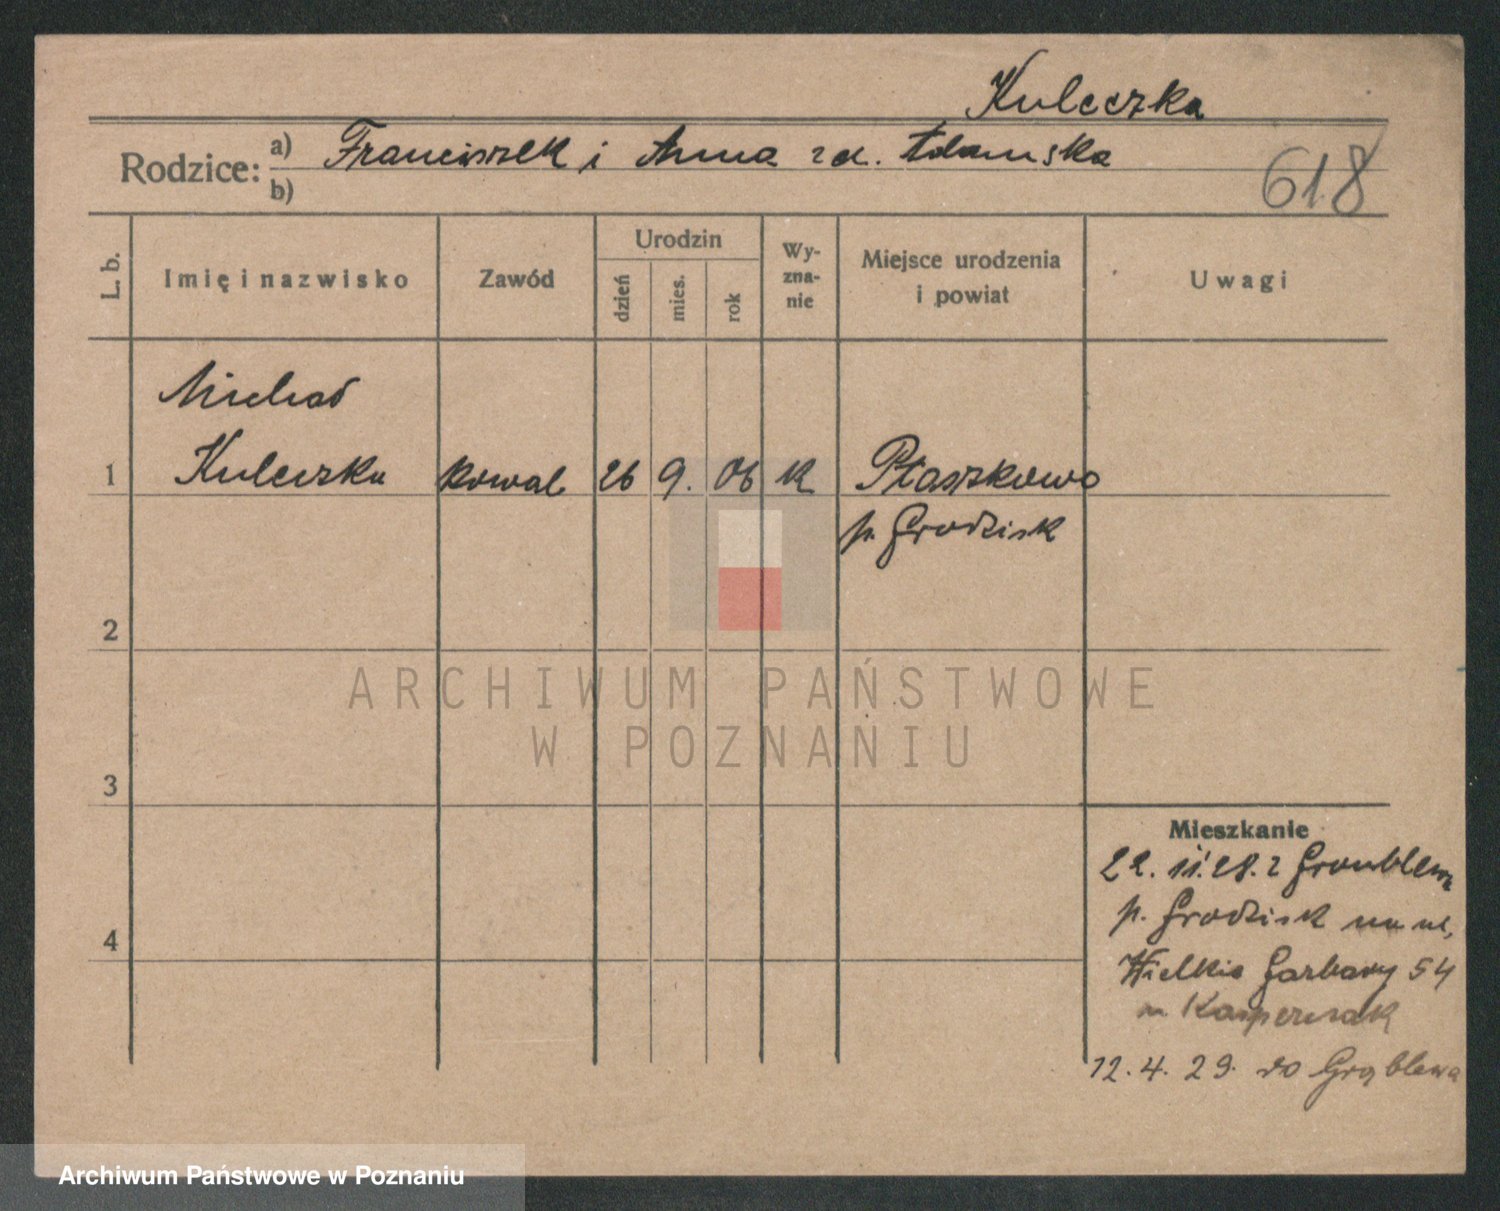 Kuleczka
Rodzice: a) Franciszek i Anna zd. Adamska
b)
618
L. b.
Imię i nazwisko
Zawód
Urodzin
dzień
mies.
rok
Wy-
zna-
nie
Miejsce urodzenia
i powiat
Uwagi
Michał
1 Kuleczka kowal 26 9. 06 k Ptaszkowo
p. Grodzisk
2
ARCHIWUM PAŃSTWOWE
W POZNANIU
3
4
Mieszkanie
22. 11. 28. z
p. Grodzisk na ul,
Wielkie Garbary 54
u. Kasperczak
12. 4. 29. do Grąblewa
Archiwum Państwowe w Poznaniu